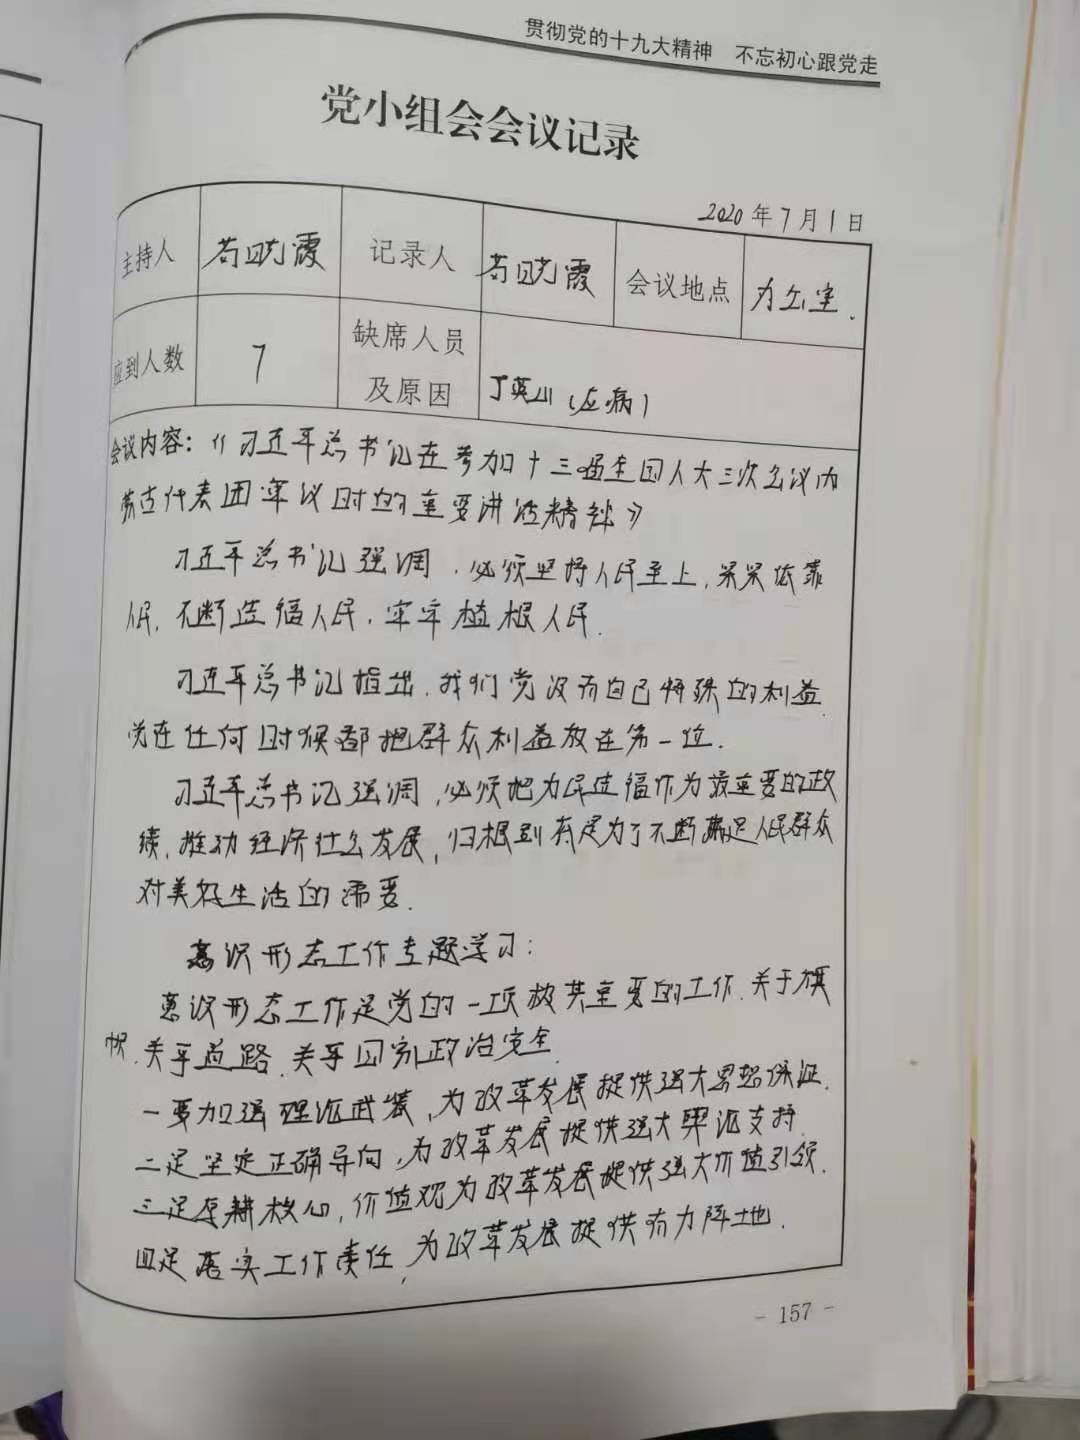 贯彻党的十九大精神 不忘初心跟党走
党小组会会议记录
2020年7月1日
主持人 苟晓霞 记录人 苟晓霞 会议地点 办公室.
应到人数 7 缺席人员及原因 丁英山(生病)
会议内容:《习近平总书记在参加十三届全国人大三次会议内
蒙古代表团审议时的重要讲话精神》
习近平总书记强调,必须坚持人民至上,紧紧依靠
人民,不断造福人民,牢牢植根人民.
习近平总书记指出,我们党没有自己特殊的利益,
党在任何时候都把群众利益放在第一位.
习近平总书记强调,必须把为民造福作为最重要的政
绩,推动经济社会发展,归根到底是为了不断满足人民群众
对美好生活的需要.
意识形态工作专题学习:
意识形态工作是党的一项极其重要的工作,关乎旗
帜、关乎道路、关乎国家政治安全.
一要加强理论武装,为改革发展提供强大思想保证.
二是坚定正确导向,为改革发展提供强大舆论支持.
三是厚耕核心,价值观为改革发展提供强大价值引领.
四是落实工作责任,为改革发展提供有力阵地.
- 157 -